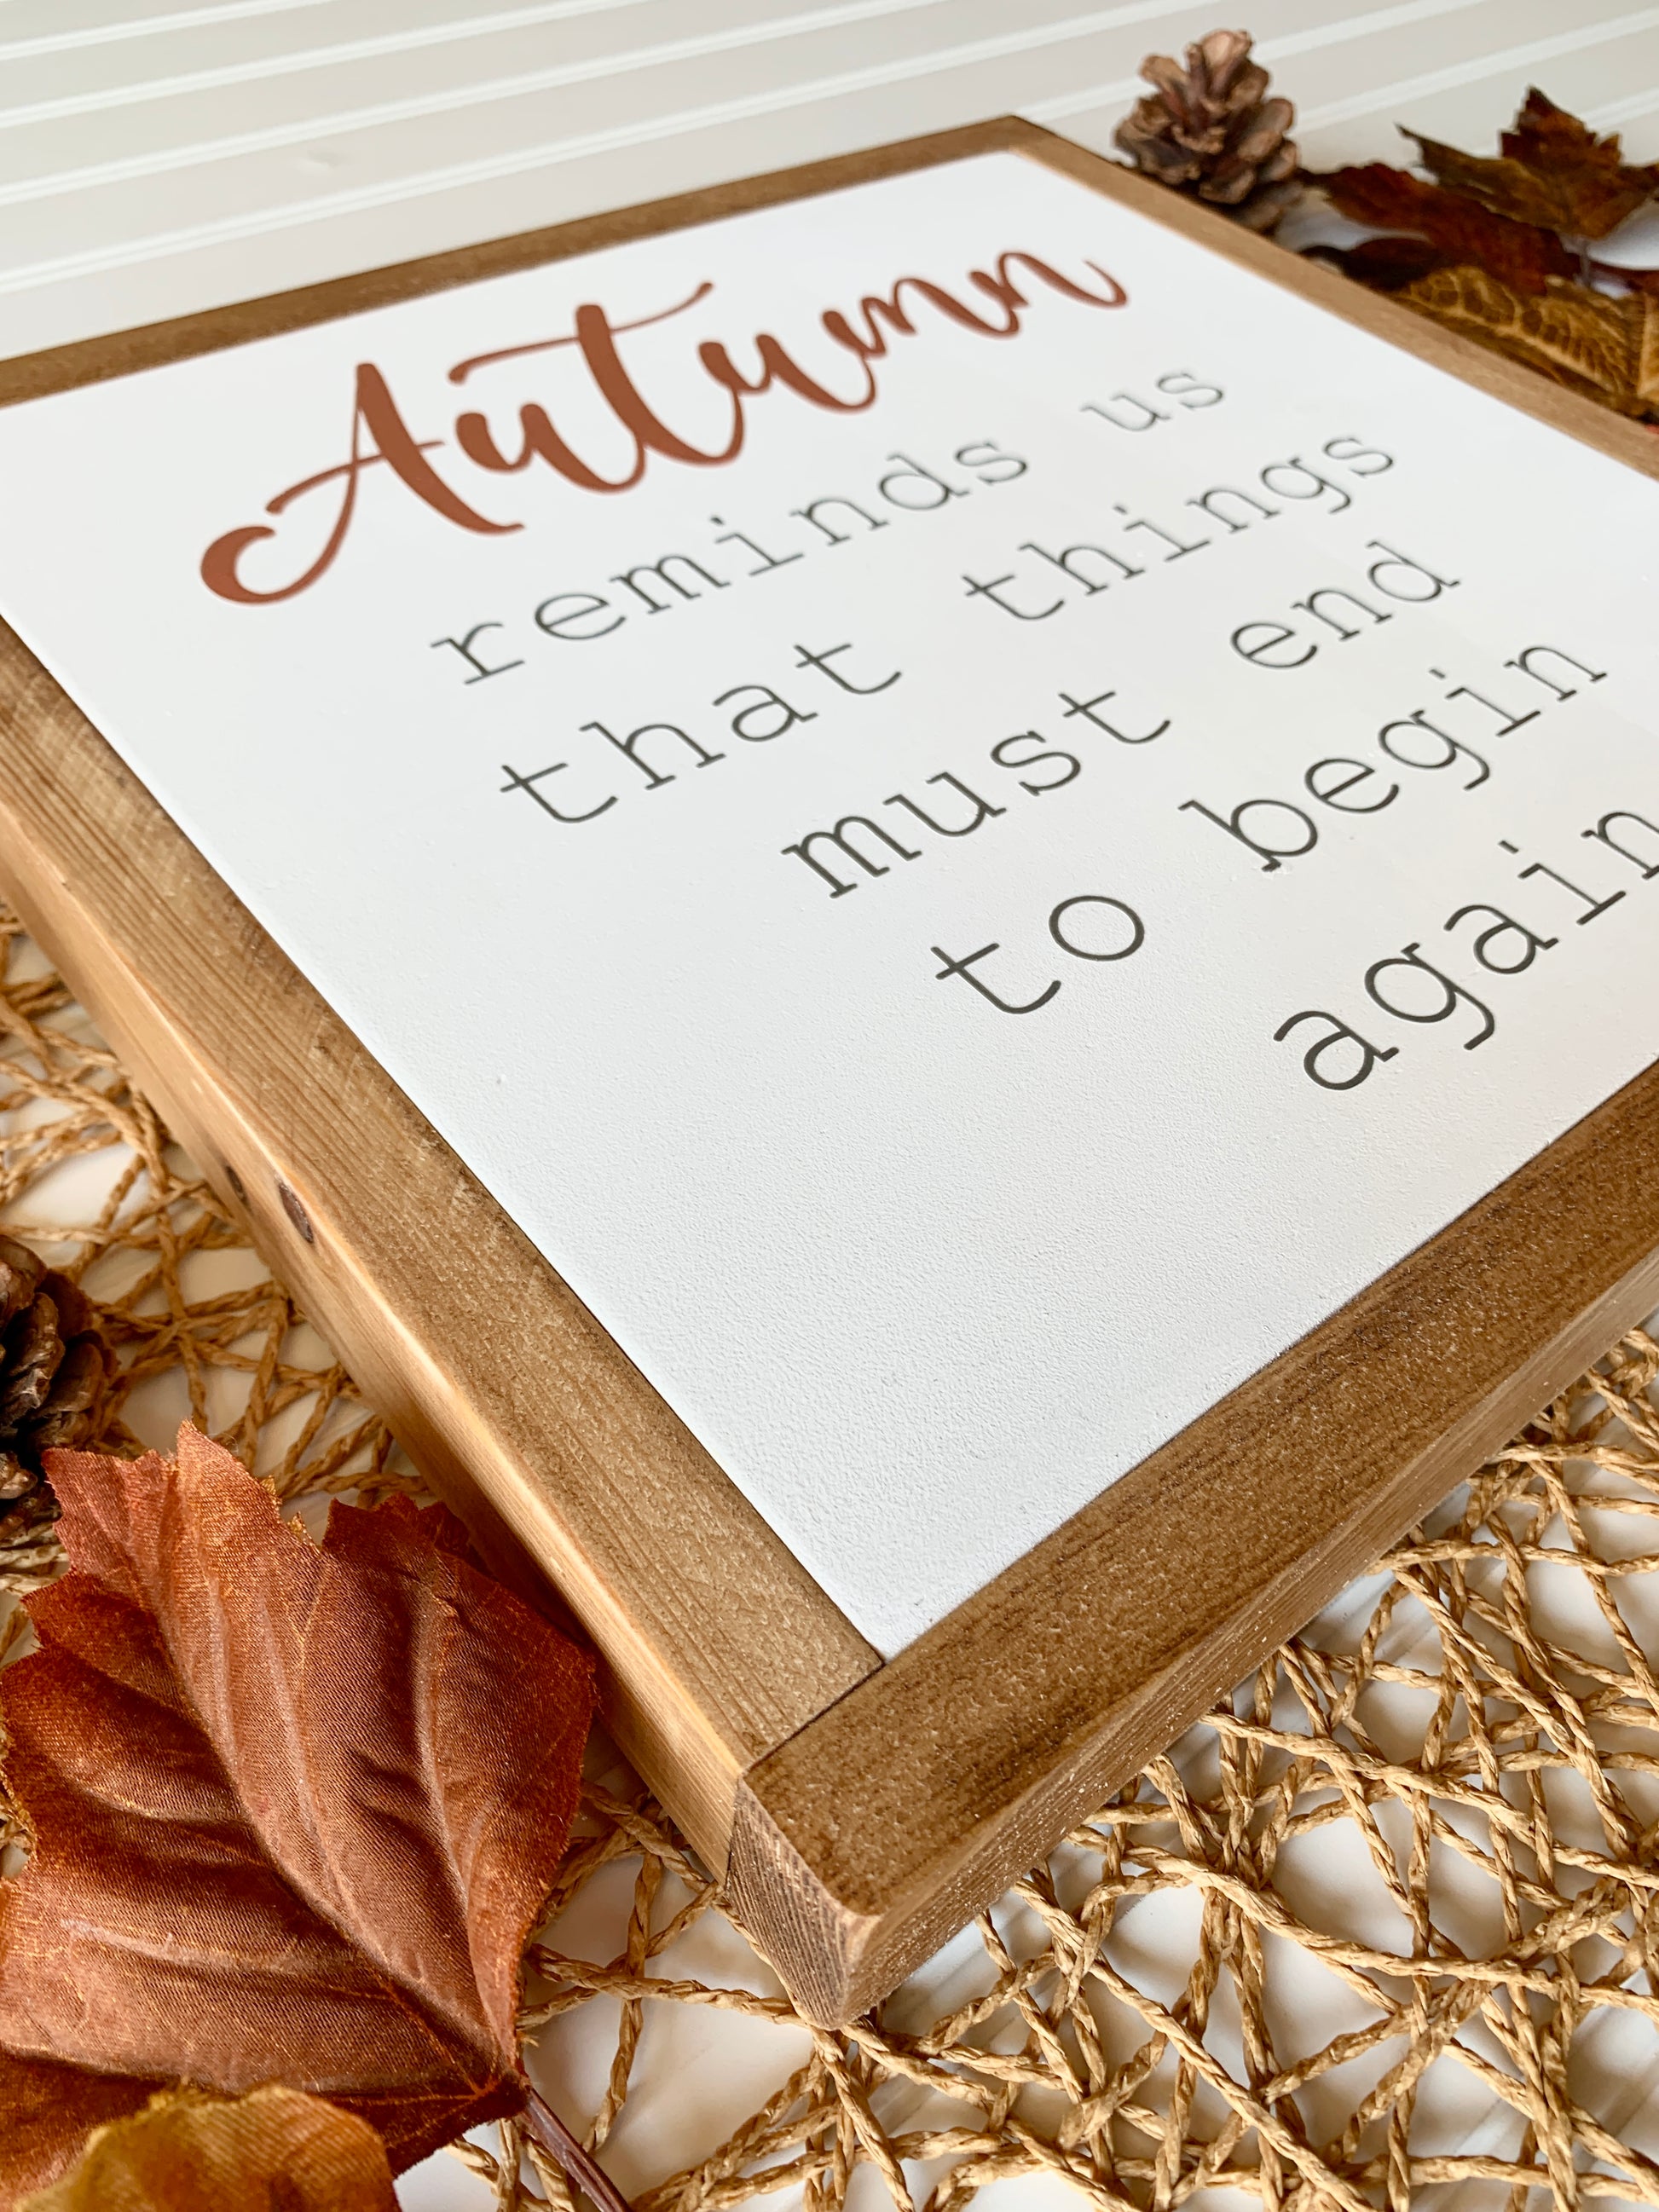 Autumn
reminds us
that things
must end
to begin
again